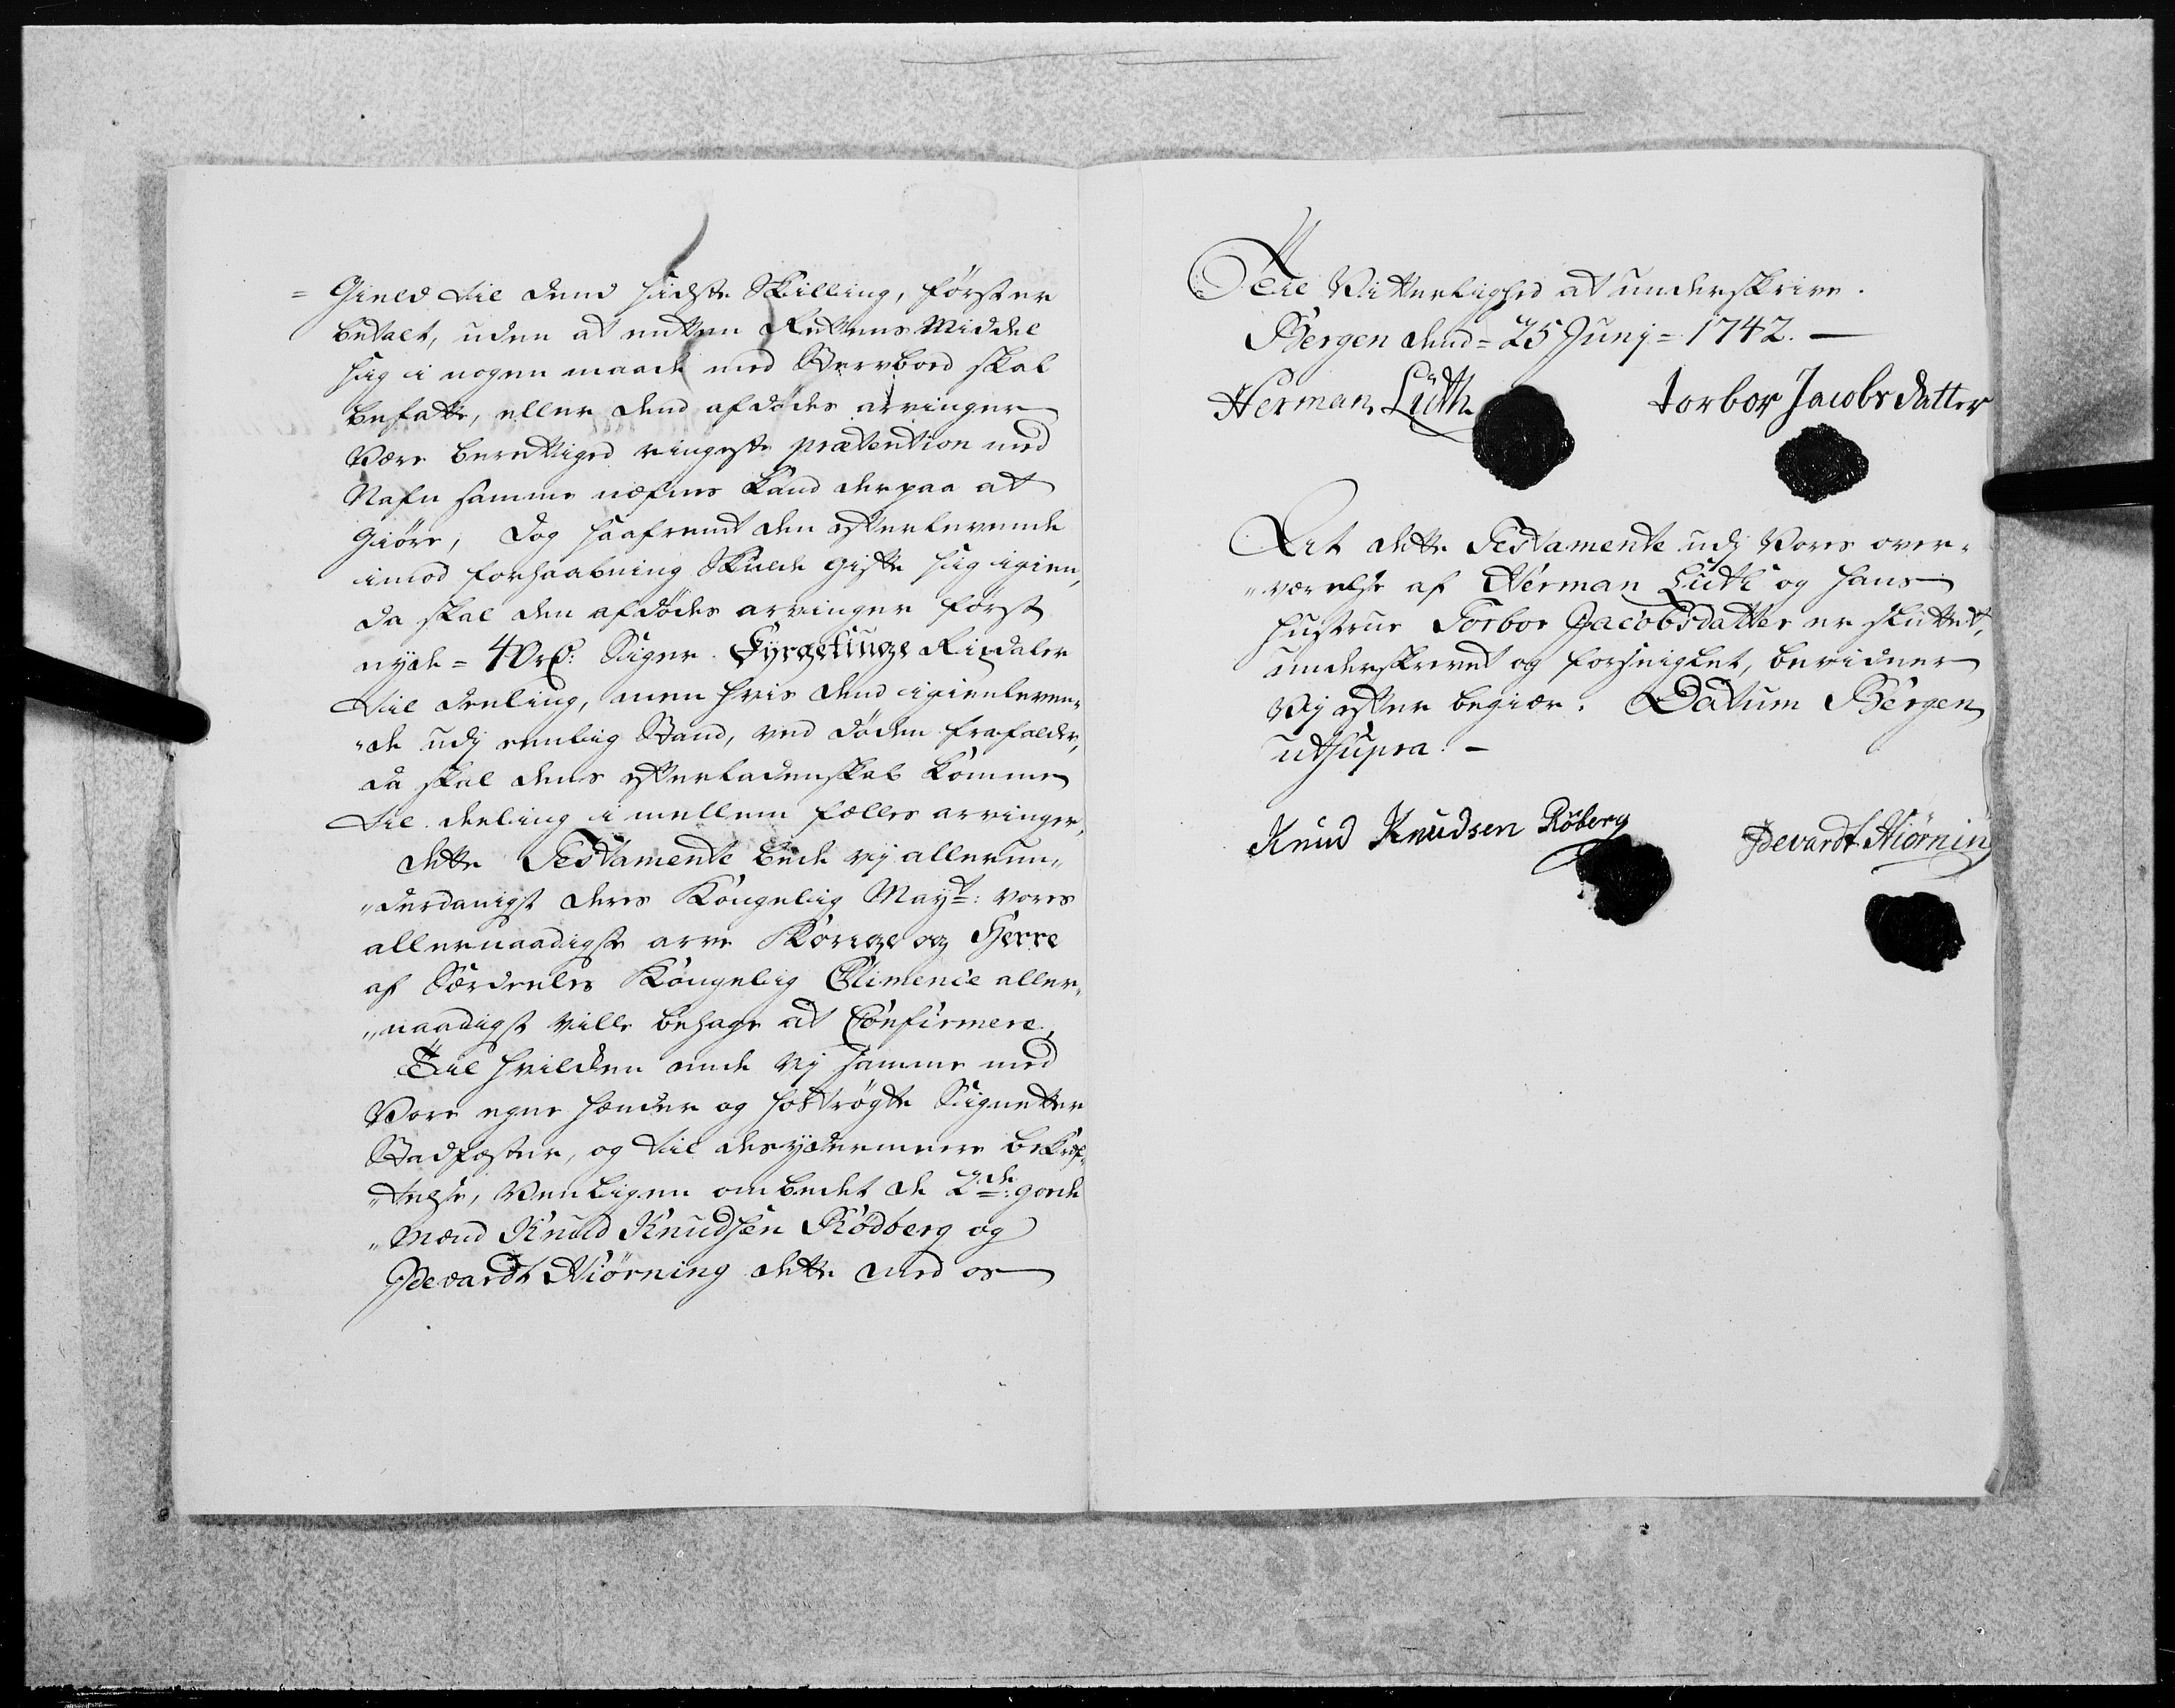 = Gield til dend sidste Skilling, først er
betalt, uden at enten Rettens Middel
sig i nogen maade med Stervbord skal
befatte, eller dend afdødes arvinger
Være berettiged ringeste prætention med
Nafn samme næfnes kand derpaa at
Giøre, Dog saafremt den efterlevende
imod forhaabning Skulde gifte sig igien,
da skal den afdødes arvinger først
nyde = 40 rd: Siger Fyrgetiuge Rixdaler
til deeling, men hvis dend igienleven„
„de udj eenlig Stand, ved døden frafalder,
da skal dens efterladenskab komme
til deeling i mellem fælles arvinger,
dette Testamente bede vj allerun„
„derdanigst deres Kongelig Mayt: vores
allernaadigste arve Konge og Herre
af Særdeeles Kongelig Climence aller„
„naadigst ville behage at Confirmere,
Til hvilcken ende vj samme med
Vore egne hænder og hostrøgte Signetter
Stadfæster, og til desydermeere bekræf„
„telse, Venligen ombedet de 2de gode
„Mænd Knud Knudsen Rödberg og
Devardt Hiörning dette med os
Til Vitterlighed at underskrive.
Bergen dend = 25 Junj = 1742. —
Herman Lüth
torbor Jacobs datter
At dette Testamente udj Vores over„
„værelse af Herman Lüth og hans
hustrue Torbor Jacobsdatter er sluttet,
underskrevet og forseiglet, bevidner
Vj efter begiær. Datum Bergen
ut supra. —
Knud Knudsen Röberg
Devardt Hiörning